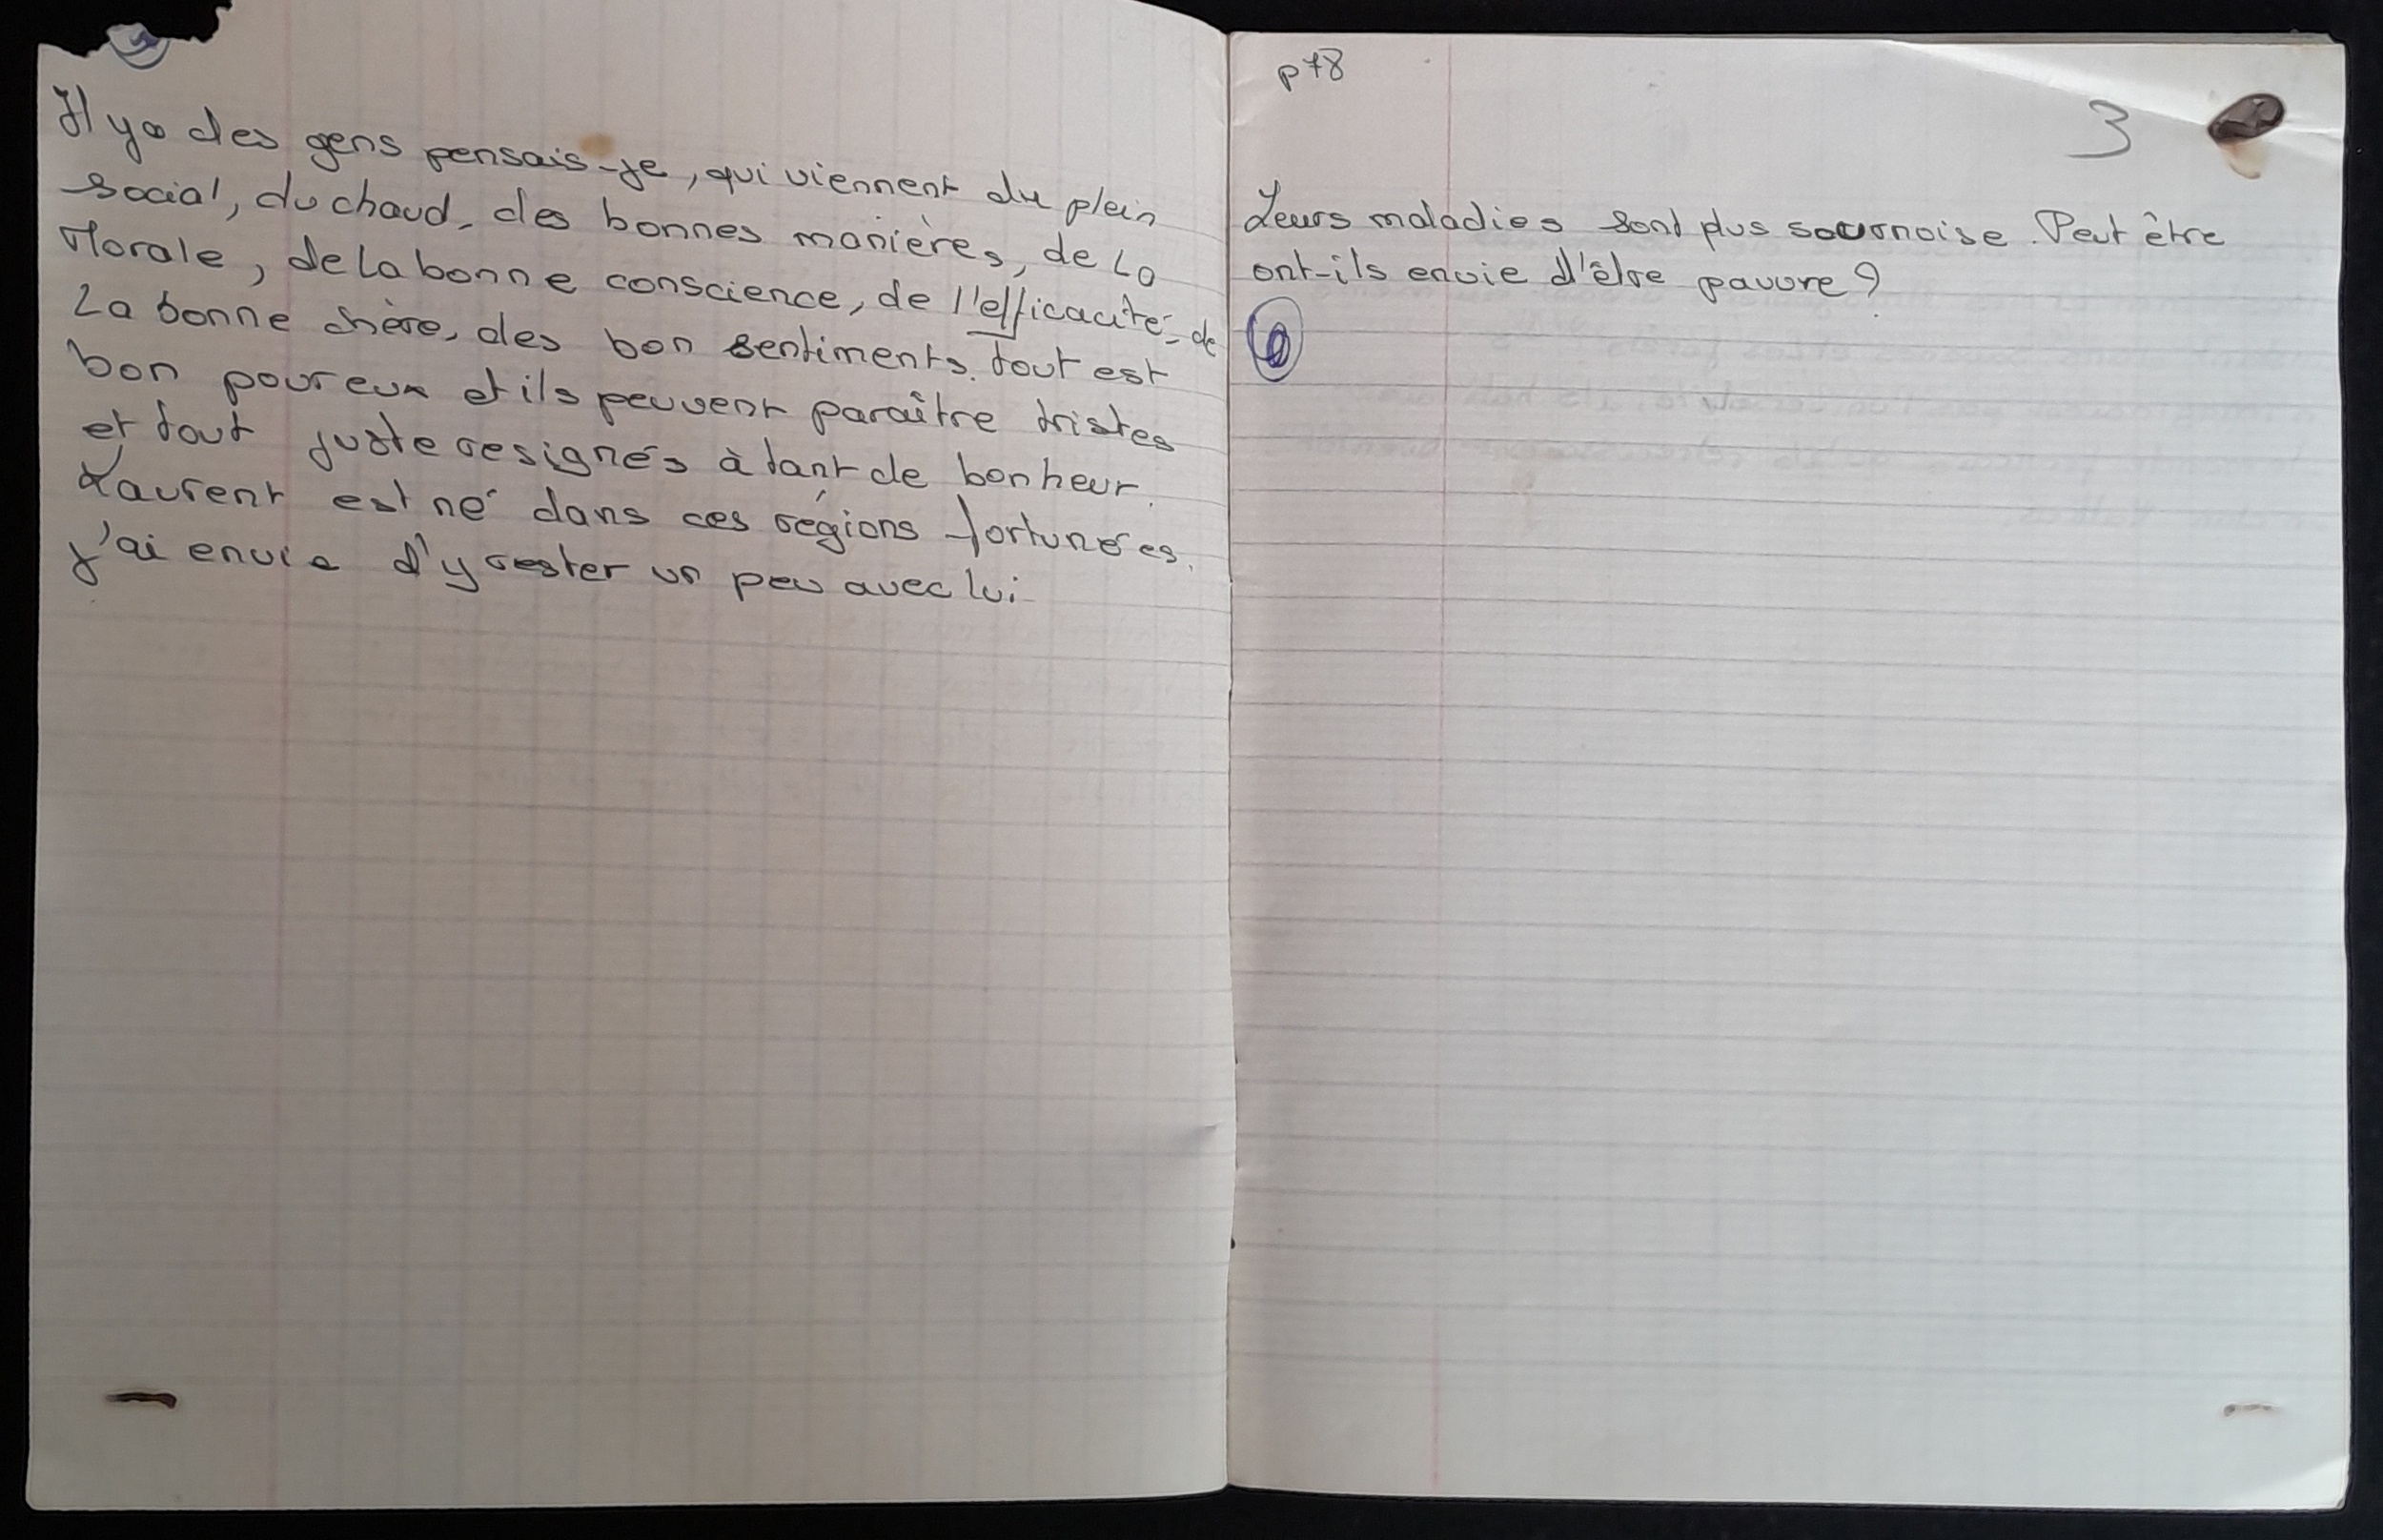 Il ya des gens pensais-je, qui viennent du plein
social, du chaud, des bonnes manières, de La
Morale, de la bonne conscience, de l'efficacité, de
La bonne chère, des bon sentiments. tout est
bon pour eux et ils peuvent paraître tristes
et tout juste resignés à tant de bonheur.
Laurent est né dans ces régions fortunées.
J'ai envie d'y rester un peu avec lui
p78
3
Leurs maladies sont plus sournoise. Peut être
ont-ils envie d'être pauvre?